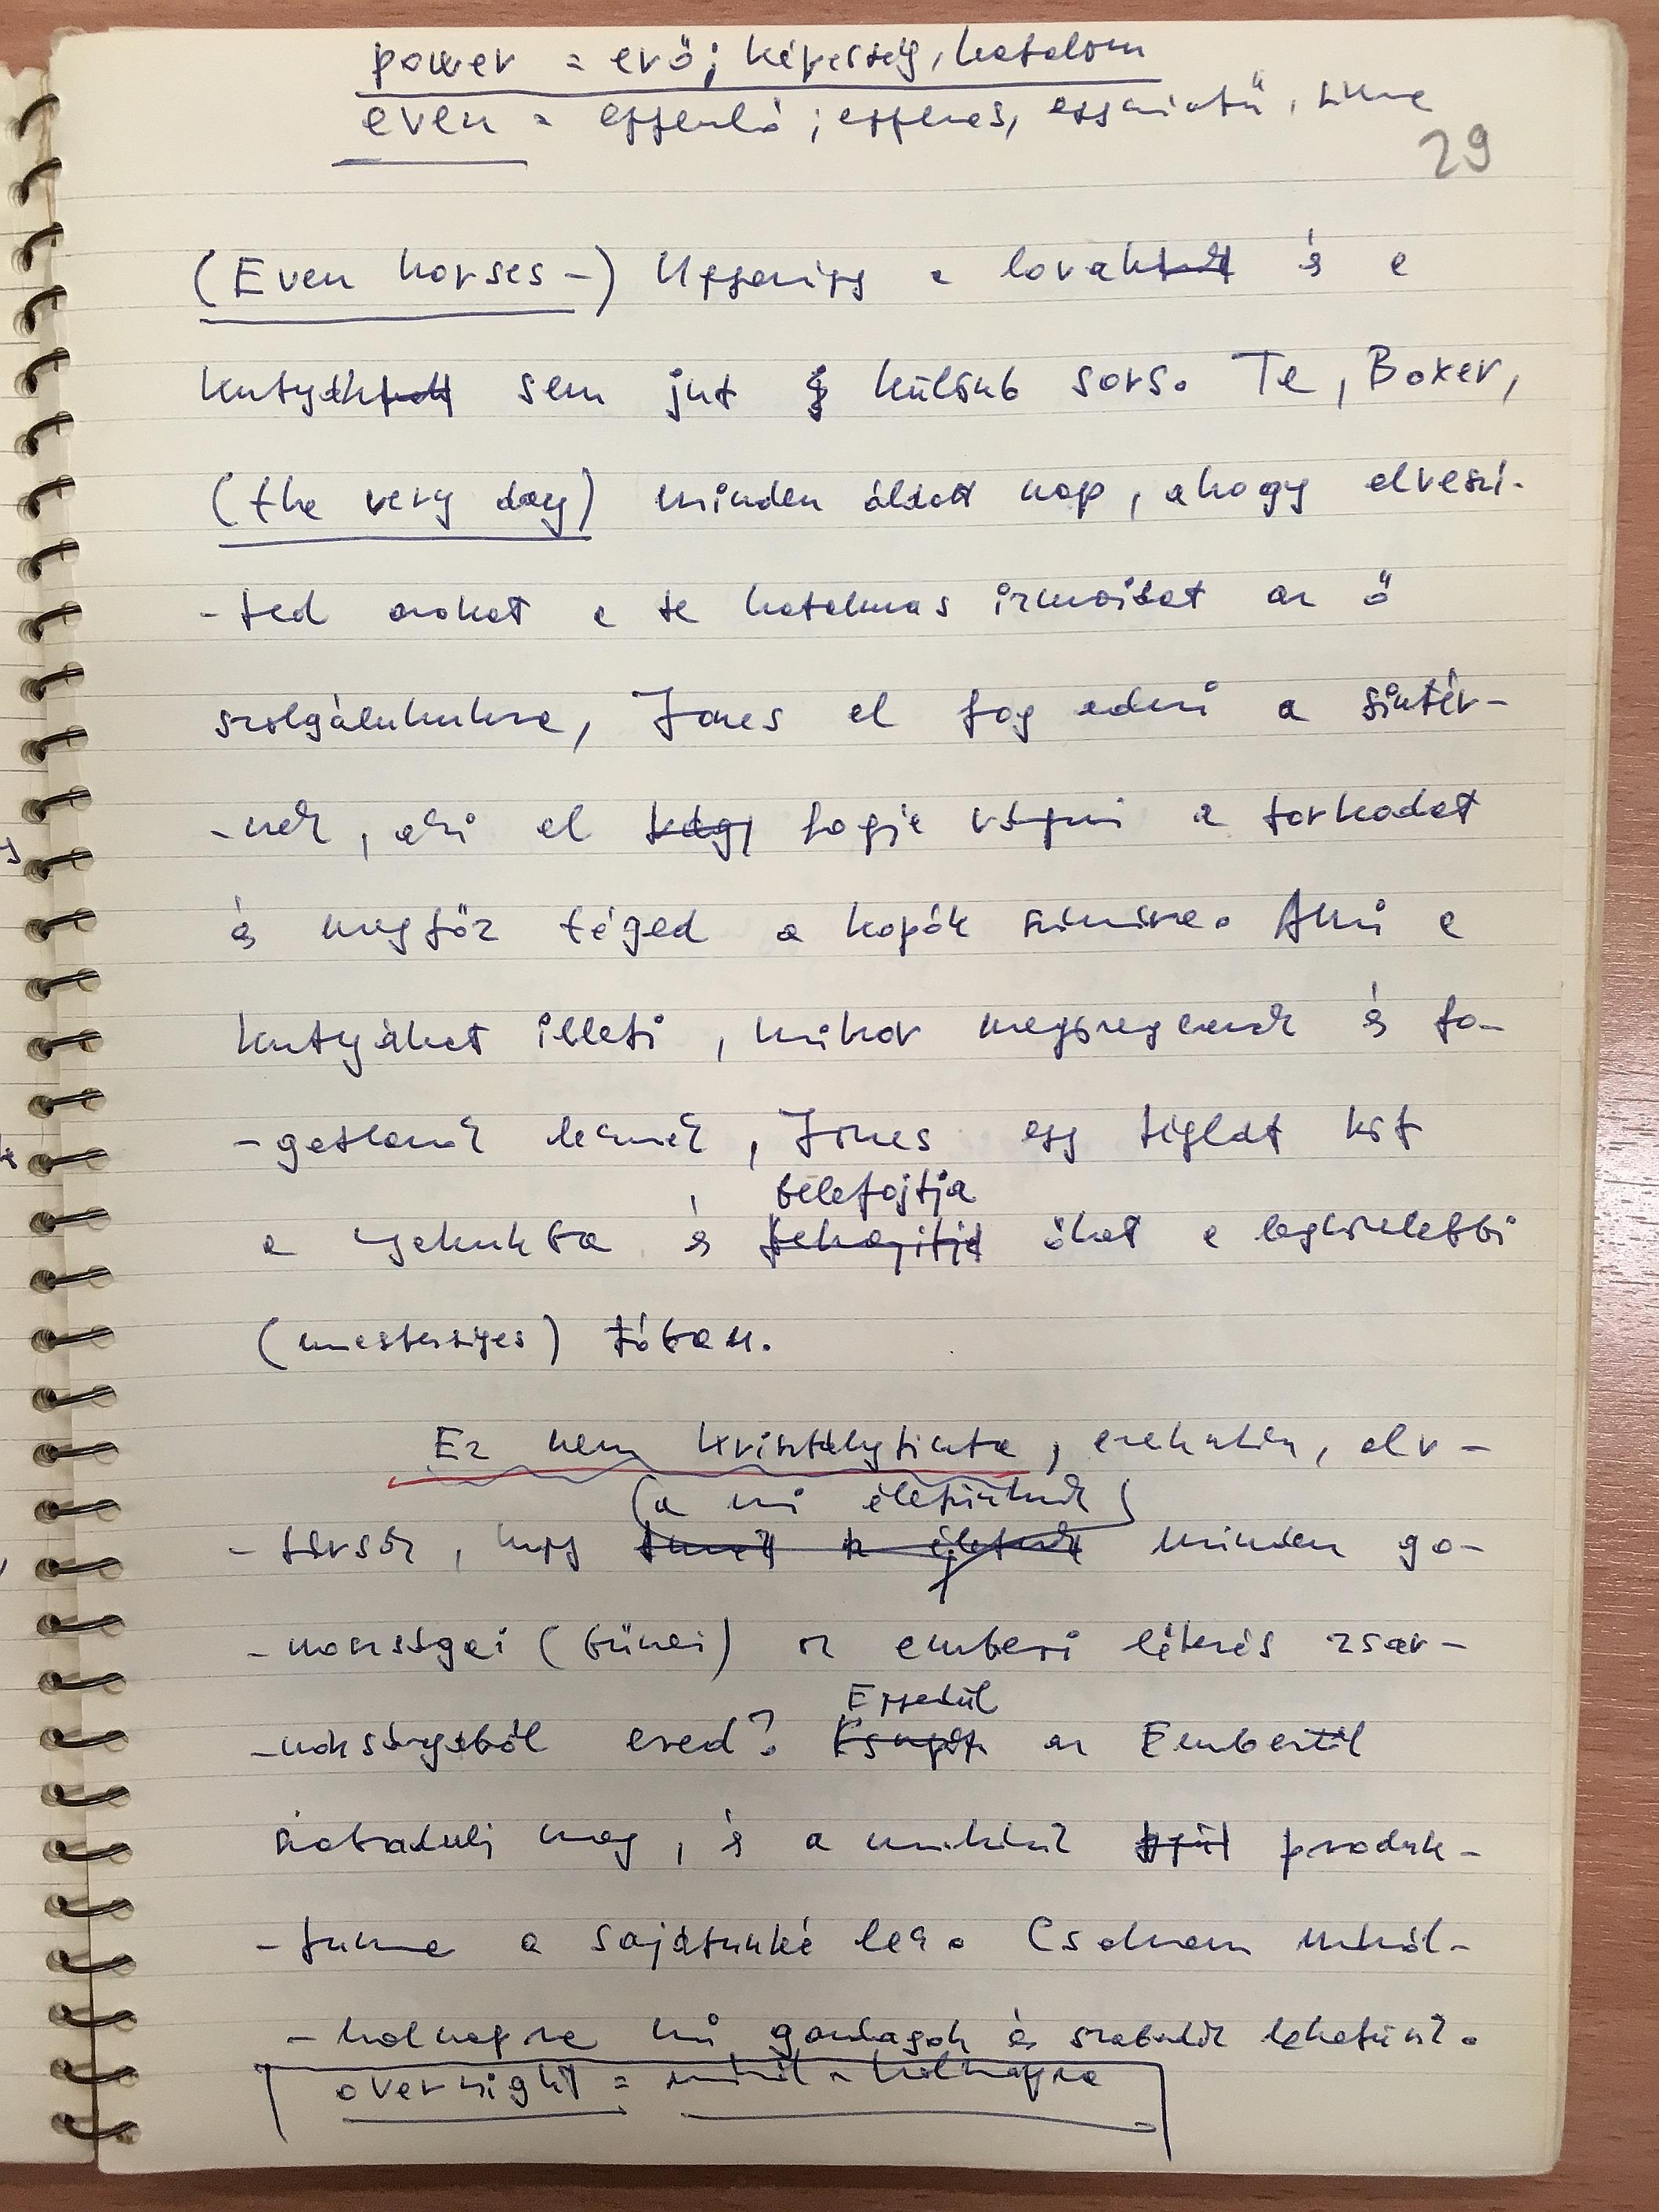 power = erő; képesség, hatalom
even = egyenlő; egyenes, egyszintű, sima
29
(Even horses-) Ugyanígy a lovak és a
kutyák sem jut különb sors. Te, Boxer,
(the very day) minden áldott nap, ahogy elveszí-
-ted azokat a te hatalmas izmaidat az ő
szolgálatukra, Jones el fog adni a sintér-
-nek, aki el fogja vágni a torkodat
és megfőz téged a kopók számára. Ami a
kutyákat illeti, mikor megöregszenek és fo-
-gatlanok lesznek, Jones egy téglát köt
a nyakukba és belefojtja őket a legközelebbi
(mesterséges) tóban.
Ez nem kristálytiszta, ezekután, elv-
-társak, hogy (a mi életünknek) minden go-
-noszságai (bűnei) az emberi lények zsar-
-nokságából ered? Egyedül az Embertől
szabadulj meg, és a munkánk produk-
-tuma a sajátunké lesz. Csaknem máról-
-holnapra mi gazdagok és szabadok lehetünk.
overnight = máról-holnapra